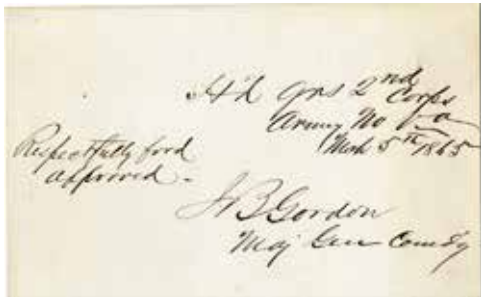 H'd Qrs 2nd Corps
Army No Va
Mch 5th 1865
Respectfully ford
approved -
J B Gordon
Maj Gen Comdg